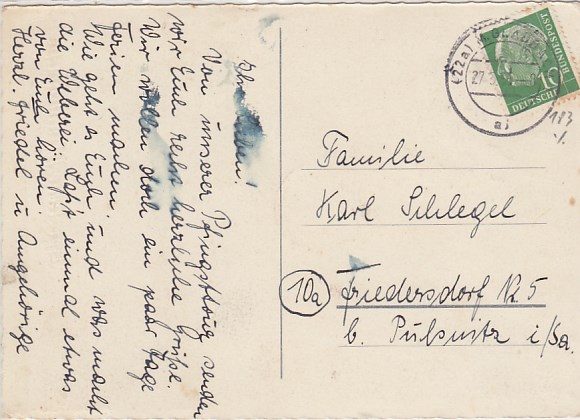 Ihr Lieben!
Von unserer Pfingsttour senden
wir Euch recht herzliche Grüße.
Wir wollen doch ein paar Tage
Ferien machen.
Wie geht es Euch und was macht
die Weberei. Laßt einmal etwas
von Euch hören.
Herzl. Friedel u. Angehörige
(22a)
27
a)
DEUTSCHE
BUNDESPOST
10
183
Familie
Karl Schlegel
10a Friedersdorf Nr. 5
b. Pulsnitz i/Sa.